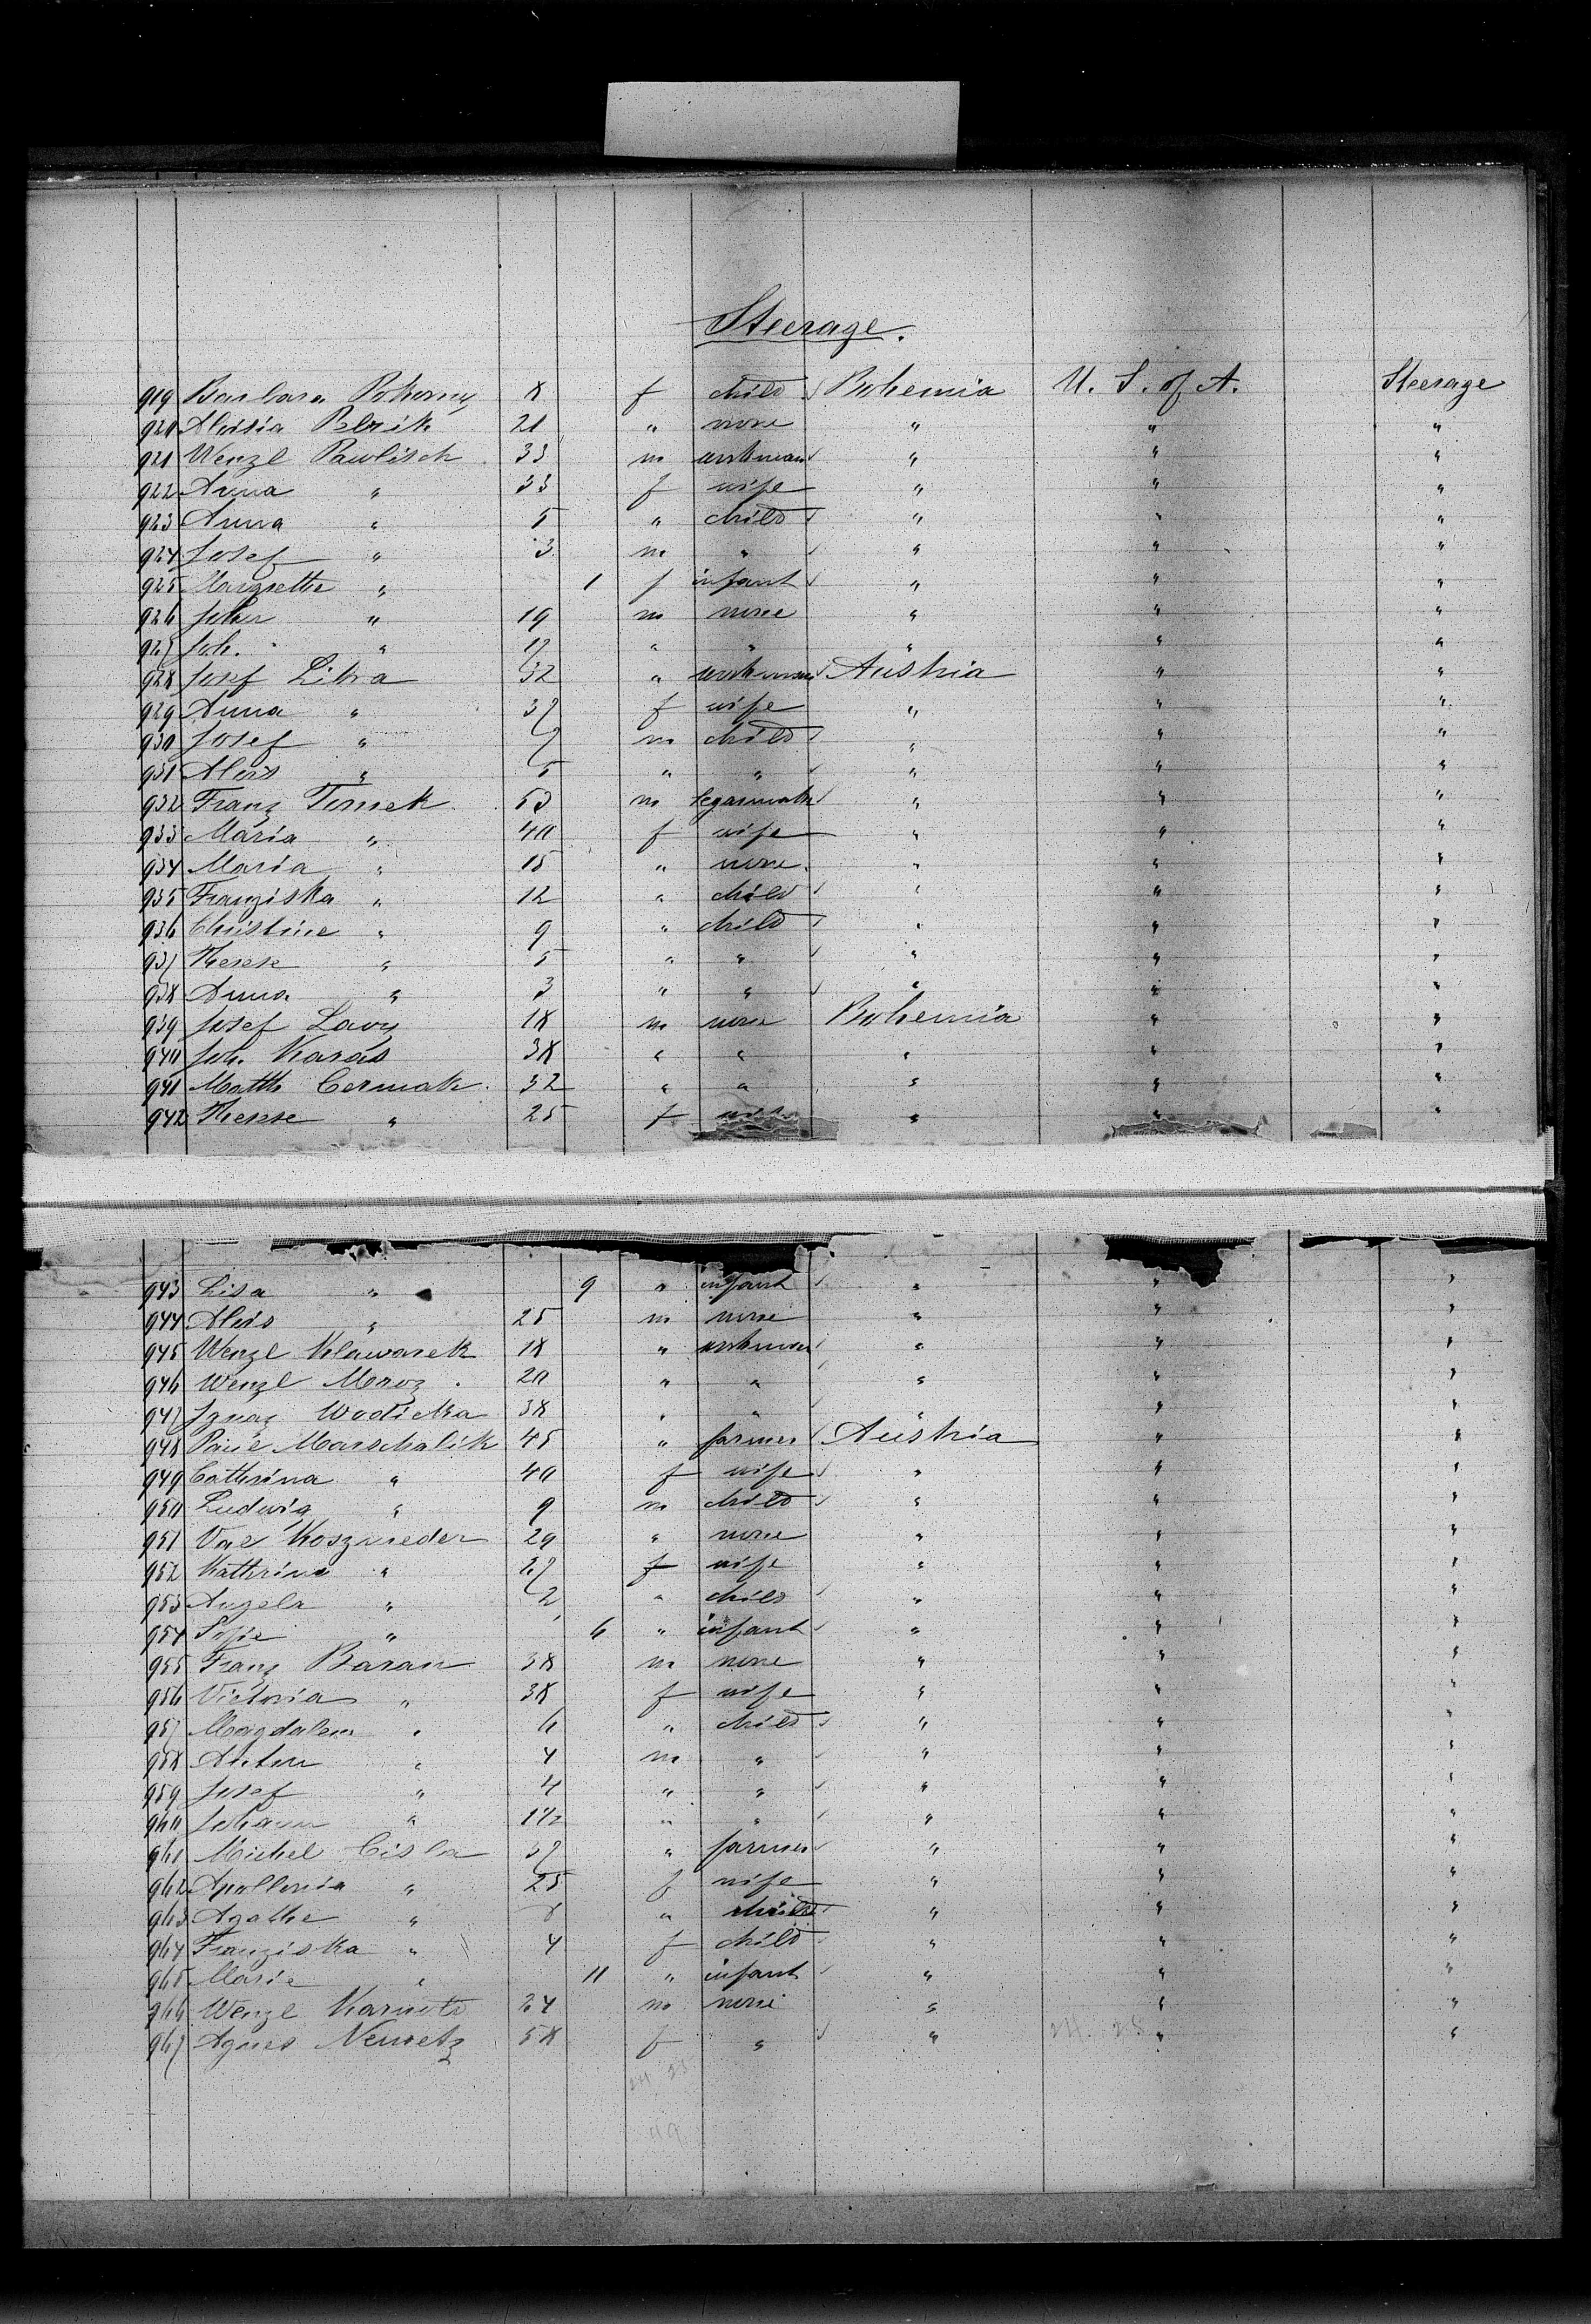 Steerage.
919 Barbara Pokorny 8 f child Bohemia U. S. of A. Steerage
920 Aloisia Pelzik 21 " none " " "
921 Wenzl Pawlisch 33 m workman " " "
922 Anna " 33 f wife " " "
923 Anna " 5 " child " " "
924 Josef " 3 m " " " "
925 Margrethe " 1 f infant " " "
926 Johan " 19 m none " " "
927 Joh. " 17 " " " " "
928 Josef Lika 32 " workman Austria " "
929 Anna " 37 f wife " " "
930 Josef " 7 m child " " "
931 Alois " 5 " " " " "
932 Franz Tomek 53 m " " "
933 Maria " 40 f wife " " "
934 Maria " 15 " none " " "
935 Franziska " 12 " child " " "
936 Christine " 9 " child " " "
937 Therese " 5 " " " " "
938 Anna " 3 " " " " "
939 Josef Lavy 18 m none Bohemia " "
940 Joh. Karás 38 " " " " "
941 Matth Cermak 32 " " " " "
942 Therese " 25 f wife " " "
943 Lisa " 9 " infant " " "
944 Alois " 25 m none " " "
945 Wenzl Klawarek 18 " workman " " "
946 Wenzl Moroz 20 " " " " "
947 Ignaz Wodicka 38 " " " " "
948 Paul Marschalik 45 " farmer Austria " "
949 Cathrina " 40 f wife " " "
950 Ludwig " 9 m child " " "
951 Val Koszreder 29 " none " " "
952 Kathrina " 27 f wife " " "
953 Angela " 2 " child " " "
954 Sofie " 6 " infant " " "
955 Franz Baran 38 m none " " "
956 Victoria " 38 f wife " " "
957 Magdalena " 6 " child " " "
958 Anton " 4 m " " " "
959 Josef " 4 " " " " "
960 Johann " 1½ " " " " "
961 Michel Cisla 37 " farmer " " "
962 Apollonia " 25 f wife " " "
963 Agathe " " child " " "
964 Franziska " 4 f child " " "
965 Marie " 11 " infant " " "
966 Wenzl 24 m none " " "
967 Agnes Nemetz 58 f " " " "